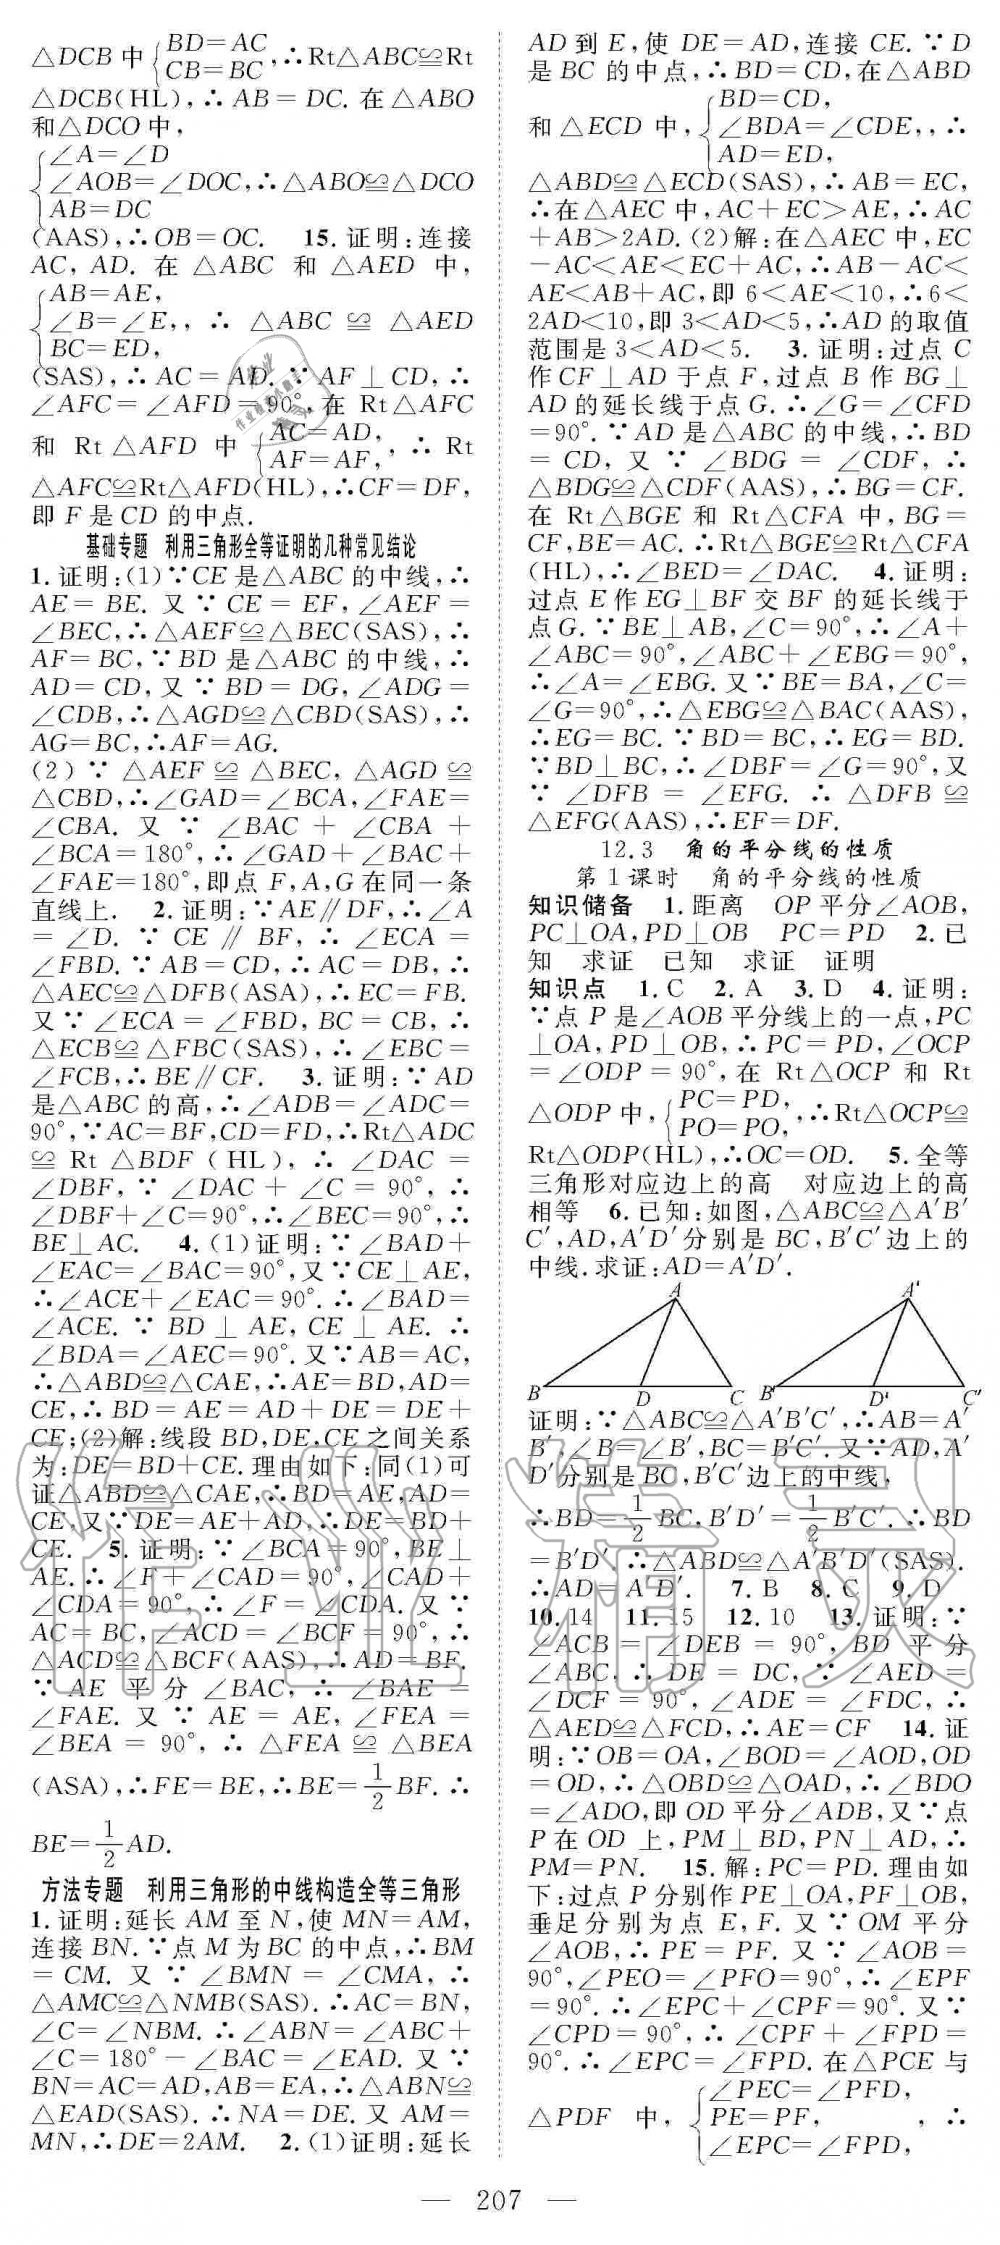 △DCB中{BD=AC
CB=BC,∴Rt△ABC≌Rt
△DCB(HL),∴AB=DC.在△ABO
和△DCO中,
{∠A=∠D
∠AOB=∠DOC,∴△ABO≌△DCO
AB=DC
(AAS),∴OB=OC. 15.证明:连接
AC,AD.在△ABC和△AED中,
{AB=AE,
∠B=∠E,,∴△ABC≌△AED
BC=ED,
(SAS),∴AC=AD.∵AF⊥CD,∴
∠AFC=∠AFD=90°,在Rt△AFC
和Rt△AFD中{AC=AD,
AF=AF,,∴Rt
△AFC≌Rt△AFD(HL),∴CF=DF,
即F是CD的中点.
基础专题 利用三角形全等证明的几种常见结论
1.证明:(1)∵CE是△ABC的中线,∴
AE=BE.又∵CE=EF,∠AEF=
∠BEC,∴△AEF≌△BEC(SAS),∴
AF=BC,∵BD是△ABC的中线,∴
AD=CD,又∵BD=DG,∠ADG=
∠CDB,∴△AGD≌△CBD(SAS),∴
AG=BC,∴AF=AG.
(2)∵△AEF≌△BEC,△AGD≌
△CBD,∴∠GAD=∠BCA,∠FAE=
∠CBA.又∵∠BAC+∠CBA+
∠BCA=180°,∴∠GAD+∠BAC+
∠FAE=180°,即点F,A,G在同一条
直线上. 2.证明:∵AE∥DF,∴∠A
=∠D.∵CE∥BF,∴∠ECA=
∠FBD.∵AB=CD,∴AC=DB,∴
△AEC≌△DFB(ASA),∴EC=FB.
又∵∠ECA=∠FBD,BC=CB,∴
△ECB≌△FBC(SAS),∴∠EBC=
∠FCB,∴BE∥CF. 3.证明:∵AD
是△ABC的高,∴∠ADB=∠ADC=
90°,∵AC=BF,CD=FD,∴Rt△ADC
≌Rt△BDF(HL),∴∠DAC=
∠DBF,∵∠DAC+∠C=90°,∴
∠DBF+∠C=90°,∴∠BEC=90°,∴
BE⊥AC. 4.(1)证明:∵∠BAD+
∠EAC=∠BAC=90°,又∵CE⊥AE,
∴∠ACE+∠EAC=90°.∴∠BAD=
∠ACE.∵BD⊥AE,CE⊥AE.∴
∠BDA=∠AEC=90°.又∵AB=AC,
∴△ABD≌△CAE,∴AE=BD,AD=
CE,∴BD=AE=AD+DE=DE+
CE;(2)解:线段BD,DE,CE之间关系
为:DE=BD+CE.理由如下:同(1)可
证△ABD≌△CAE,∴BD=AE,AD=
CE,又∵DE=AE+AD,∴DE=BD+
CE. 5.证明:∵∠BCA=90°,BE⊥
AE.∴∠F+∠CAD=90°,∠CAD+
∠CDA=90°,∴∠F=∠CDA.又∵
AC=BC,∠ACD=∠BCF=90°,∴
△ACD≌△BCF(AAS),∴AD=BF.
∵AE平分∠BAC,∴∠BAE=
∠FAE.又∵AE=AE,∠FEA=
∠BEA=90°,∴△FEA≌△BEA
(ASA),∴FE=BE,∴BE=1/2BF.∴
BE=1/2AD.
方法专题 利用三角形的中线构造全等三角形
1.证明:延长AM至N,使MN=AM,
连接BN.∵点M为BC的中点,∴BM
=CM.又∵∠BMN=∠CMA,∴
△AMC≌△NMB(SAS).∴AC=BN,
∠C=∠NBM.∴∠ABN=∠ABC+
∠C=180°-∠BAC=∠EAD.又∵
BN=AC=AD,AB=EA,∴△ABN≌
△EAD(SAS).∴NA=DE.又AM=
MN,∴DE=2AM. 2.(1)证明:延长
AD到E,使DE=AD,连接CE.∵D
是BC的中点,∴BD=CD,在△ABD
和△ECD中,{BD=CD,
∠BDA=∠CDE,,∴
AD=ED,
△ABD≌△ECD(SAS),∴AB=EC,
∴在△AEC中,AC+EC>AE,∴AC
+AB>2AD.(2)解:在△AEC中,EC
-AC<AE<EC+AC,∴AB-AC<
AE<AB+AC,即6<AE<10,∴6<
2AD<10,即3<AD<5,∴AD的取值
范围是3<AD<5. 3.证明:过点C
作CF⊥AD于点F,过点B作BG⊥
AD的延长线于点G.∴∠G=∠CFD
=90°.∵AD是△ABC的中线,∴BD
=CD,又∵∠BDG=∠CDF,∴
△BDG≌△CDF(AAS),∴BG=CF.
在Rt△BGE和Rt△CFA中,BG=
CF,BE=AC.∴Rt△BGE≌Rt△CFA
(HL),∴∠BED=∠DAC. 4.证明:
过点E作EG⊥BF交BF的延长线于
点G.∵BE⊥AB,∠C=90°,∴∠A+
∠ABC=90°,∠ABC+∠EBG=90°,
∴∠A=∠EBG.又∵BE=BA,∠C=
∠G=90°,∴△EBG≌△BAC(AAS),
∴EG=BC.∵BD=BC,∴EG=BD.
∵BD⊥BC,∴∠DBF=∠G=90°,又
∵∠DFB=∠EFG.∴△DFB≌
△EFG(AAS),∴EF=DF.
12.3 角的平分线的性质
第1课时 角的平分线的性质
知识储备 1.距离 OP平分∠AOB,
PC⊥OA,PD⊥OB PC=PD 2.已
知 求证 已知 求证 证明
知识点 1.C 2.A 3.D 4.证明:
∵点P是∠AOB平分线上的一点,PC
⊥OA,PD⊥OB,∴PC=PD,∠OCP
=∠ODP=90°,在Rt△OCP和Rt
△ODP中,{PC=PD,
PO=PO,,∴Rt△OCP≌
Rt△ODP(HL),∴OC=OD. 5.全等
三角形对应边上的高 对应边上的高
相等 6.已知:如图,△ABC≌△A′B′
C′,AD,A′D′分别是BC,B′C′边上的
中线.求证:AD=A′D′.
A A′
B D C B′ D′ C′
证明:∵△ABC≌△A′B′C′,∴AB=A′
B′,∠B=∠B′,BC=B′C′.又∵AD,A′
D′分别是BC,B′C′边上的中线,
∴BD=1/2BC,B′D′=1/2B′C′.∴BD
=B′D′ ∴△ABD≌△A′B′D′(SAS).
∴AD=A′D′. 7.B 8.C 9.D
10.14 11.15 12.10 13.证明:∵
∠ACB=∠DEB=90°,BD平分
∠ABC,∴DE=DC,∵∠AED=
∠DCF=90°,∠ADE=∠FDC,∴
△AED≌△FCD,∴AE=CF 14.证
明:∵OB=OA,∠BOD=∠AOD,OD
=OD,∴△OBD≌△OAD,∴∠BDO
=∠ADO,即OD平分∠ADB,又∵点
P在OD上,PM⊥BD,PN⊥AD,∴
PM=PN. 15.解:PC=PD.理由如
下:过点P分别作PE⊥OA,PF⊥OB,
垂足分别为点E,F.又∵OM平分
∠AOB,∴PE=PF.又∵∠AOB=
90°,∠PEO=∠PFO=90°,∴∠EPF
=90°.∴∠EPC+∠CPF=90°.又∵
∠CPD=90°,∴∠CPF+∠FPD=
90°.∴∠EPC=∠FPD.在△PCE与
△PDF中,{∠PEC=∠PFD,
PE=PF,,∴
∠EPC=∠FPD,
— 207 —
作业精灵